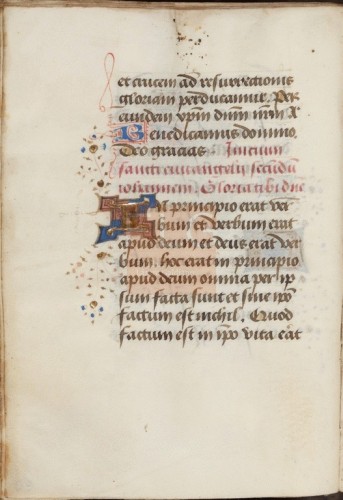 et crucem ad resurrectionis
gloriam perducamur. Per
eundem xpm dnm nrm A
Benedicamus domino.
Deo gracias. Inicium
sancti euuangelij secundu
iohannem. Gloria tibi dne
In principio erat ver
bum et verbum erat
apud deum et deus erat ver
bum. hoc erat in principio
apud deum omnia per ip
sum facta sunt et sine ipo
factum est nichil. Quod
factum est in ipo vita erat